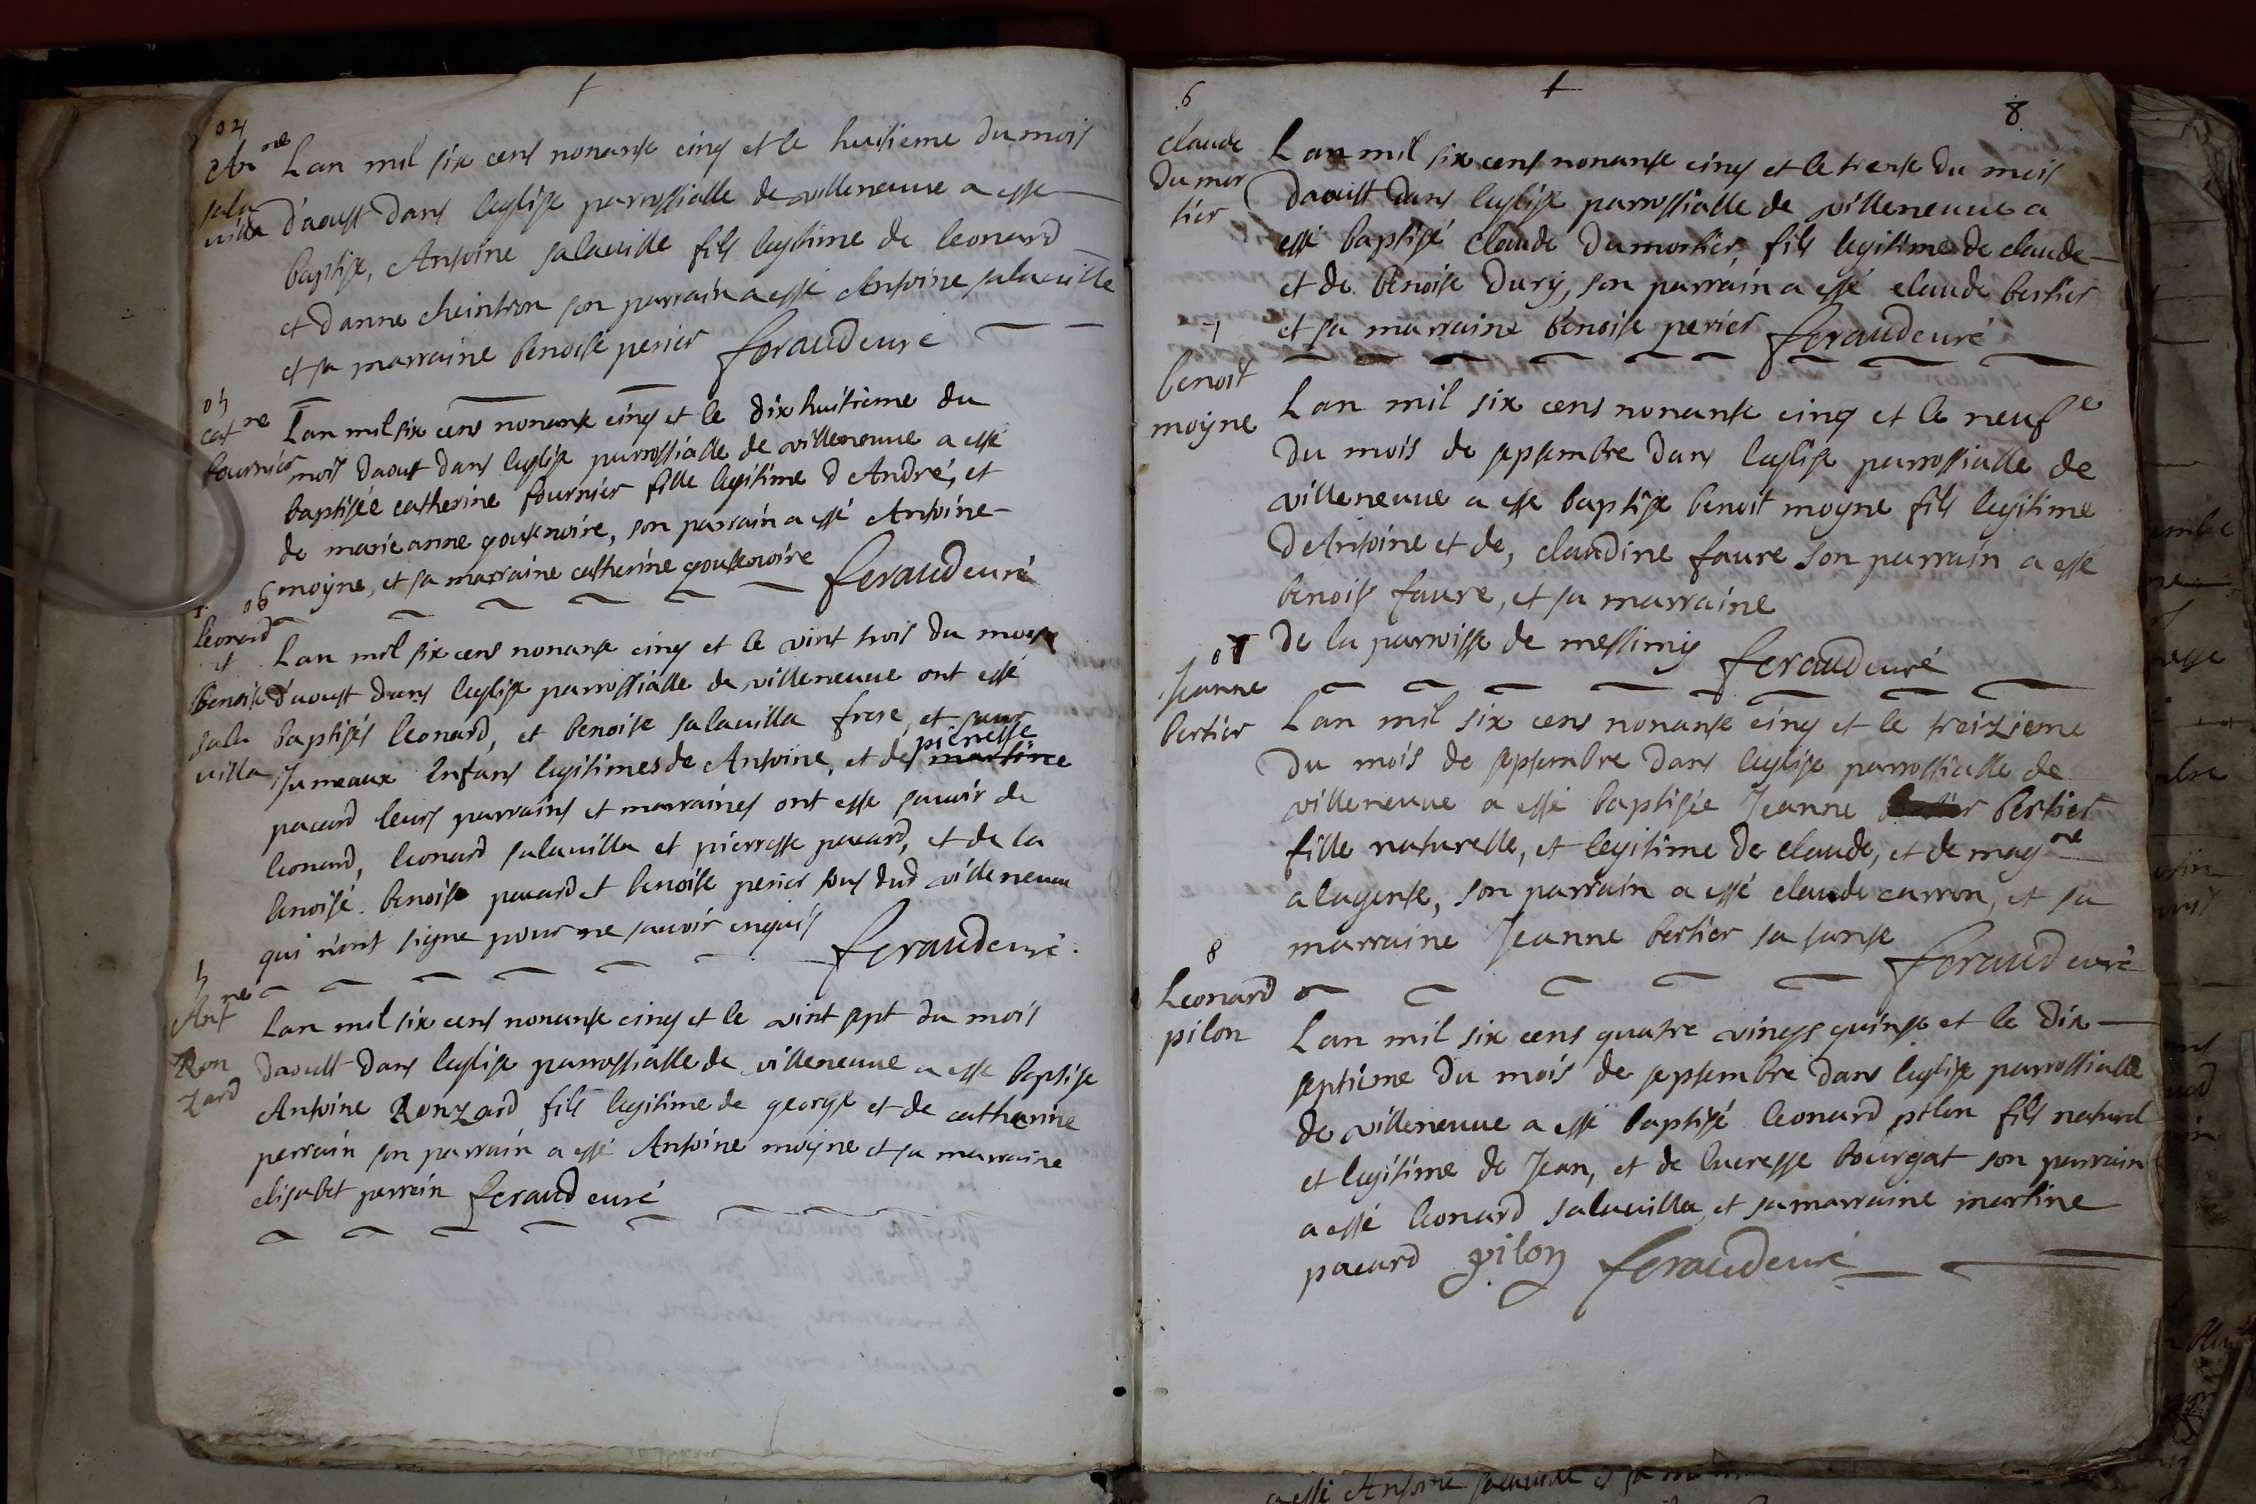 04
An ne
sala
villa
Lan mil six cens nonante cinq et le huitieme du mois
d'aoust dans leglise parrossialle de villeneuve a esse
baptise, Antoine salaville fils legitime de leonard
et d anne cheintron son parrain a essé Antoine salaville
et sa marraine benoite perier feraud curé
05
cat ne
fournier
Lan mil six cens nonante cinq et le dix huitieme du
mois daoust dans leglise parrossialle de villeneuve a essé
baptisée catherine fournier fille legitime d André, et
de marie anne goutenoire, son parrain a essé Antoine
moyne, et sa marraine catherine goutenoire
feraud curé
06
leonard
et
benoite
sala
villa
Lan mil six cens nonante cinq et le vint trois du mois
d'aoust dans leglise parrossialle de villeneuve ont essé
baptisés leonard, et benoite salavilla frere et sœur
Jumeaux Enfans legitimes de Antoine, et de pierresse martine
pacard leurs parrains et marraines ont esse scavoir de
leonard, leonard salavilla et pierresse pacard, et de la
benoite benoist pacard et benoite perier tous dud villeneuve
qui nont signe pour ne scavoir enquis
feraud curé
5
Ant ne
Ron
zard
Lan mil six cens nonante cinq et le vint sept du mois
daoust dans leglise parrossialle de villeneuve a esse baptise
Antoine Ronzard fils legitime de george et de catherine
perrain son parrain a essé Antoine moyne et sa marraine
elisabet perrein feraud curé
6
8
claude
du mor
tier
Lan mil six cens nonante cinq et le trente du mois
daoust dans leglise parrossialle de villeneuve a
essé baptisé claude dumortier, fils legitime de claude
et de benoite Dury, son parrain a essé claude bertier
et sa marraine benoite perier feraud curé
7
benoit
moyne
Lan mil six cens nonante cinq et le neuf e
du mois de septembre dans leglise parrossialle de
villeneuve a esse baptise benoit moyne fils legitime
d Antoine et de, claudine faure son parrain a essé
benoist faure, et sa marraine
de la parroisse de messimy feraud curé
07
Jeanne
bertier
Lan mil six cens nonante cinq et le treizieme
du mois de septembre dans leglise parrossialle de
villeneuve a essé baptisée Jeanne bertier
fille naturelle, et legitime de claude, et de mag ne
alagente, son parrain a essé claude carron, et sa
marraine Jeanne bertier sa tante
feraud curé
8
Leonard
pilon
Lan mil six cens quatre vingts quinse et le dix
septieme du mois de septembre dans leglise parrossialle
de villeneuve a essé baptisé leonard pilon fils naturel
et legitime de Jean, et de lucresse bourgat son parrain
a essé leonard salavilla, et sa marraine martine
pacard pilon feraud curé